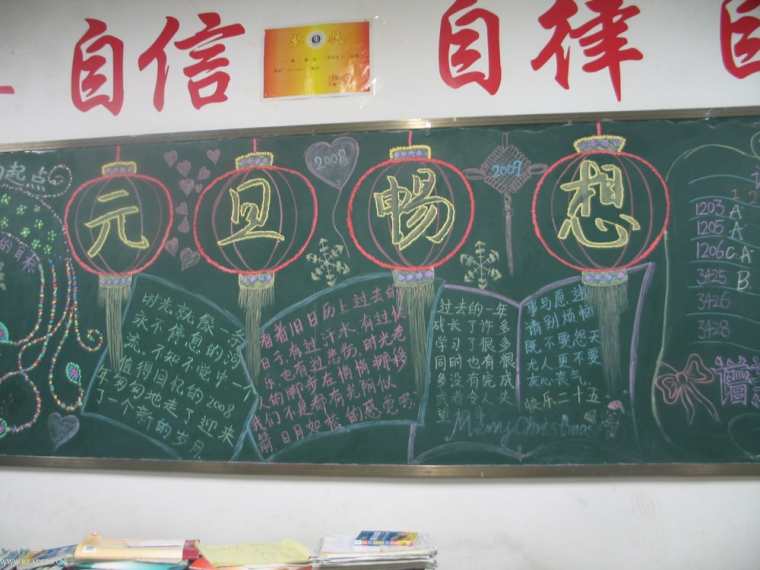 自信
自律
自
起点
元旦畅想
2008
2009
时光就像一条
永不停息的河
流,不知不觉中一个
值得回忆的2008
年匆匆地走了迎来
了一个新的岁月
看着旧日历上过去的
日子有过汗水,有过欢
乐,也有过悲伤,时光老
人的脚步在悄悄挪移
我们不是都有光阴似
箭日月如梭的感觉吗
过去的一年
成长了许多
学习了很多
同时也有很
多没有完成
事与愿违
请别烦恼
既不要怨天
尤人更不要
灰心丧气
快乐二十五
Merry Christmas
1203 A
1205 A
1206 C A
3425 B
3426
3428